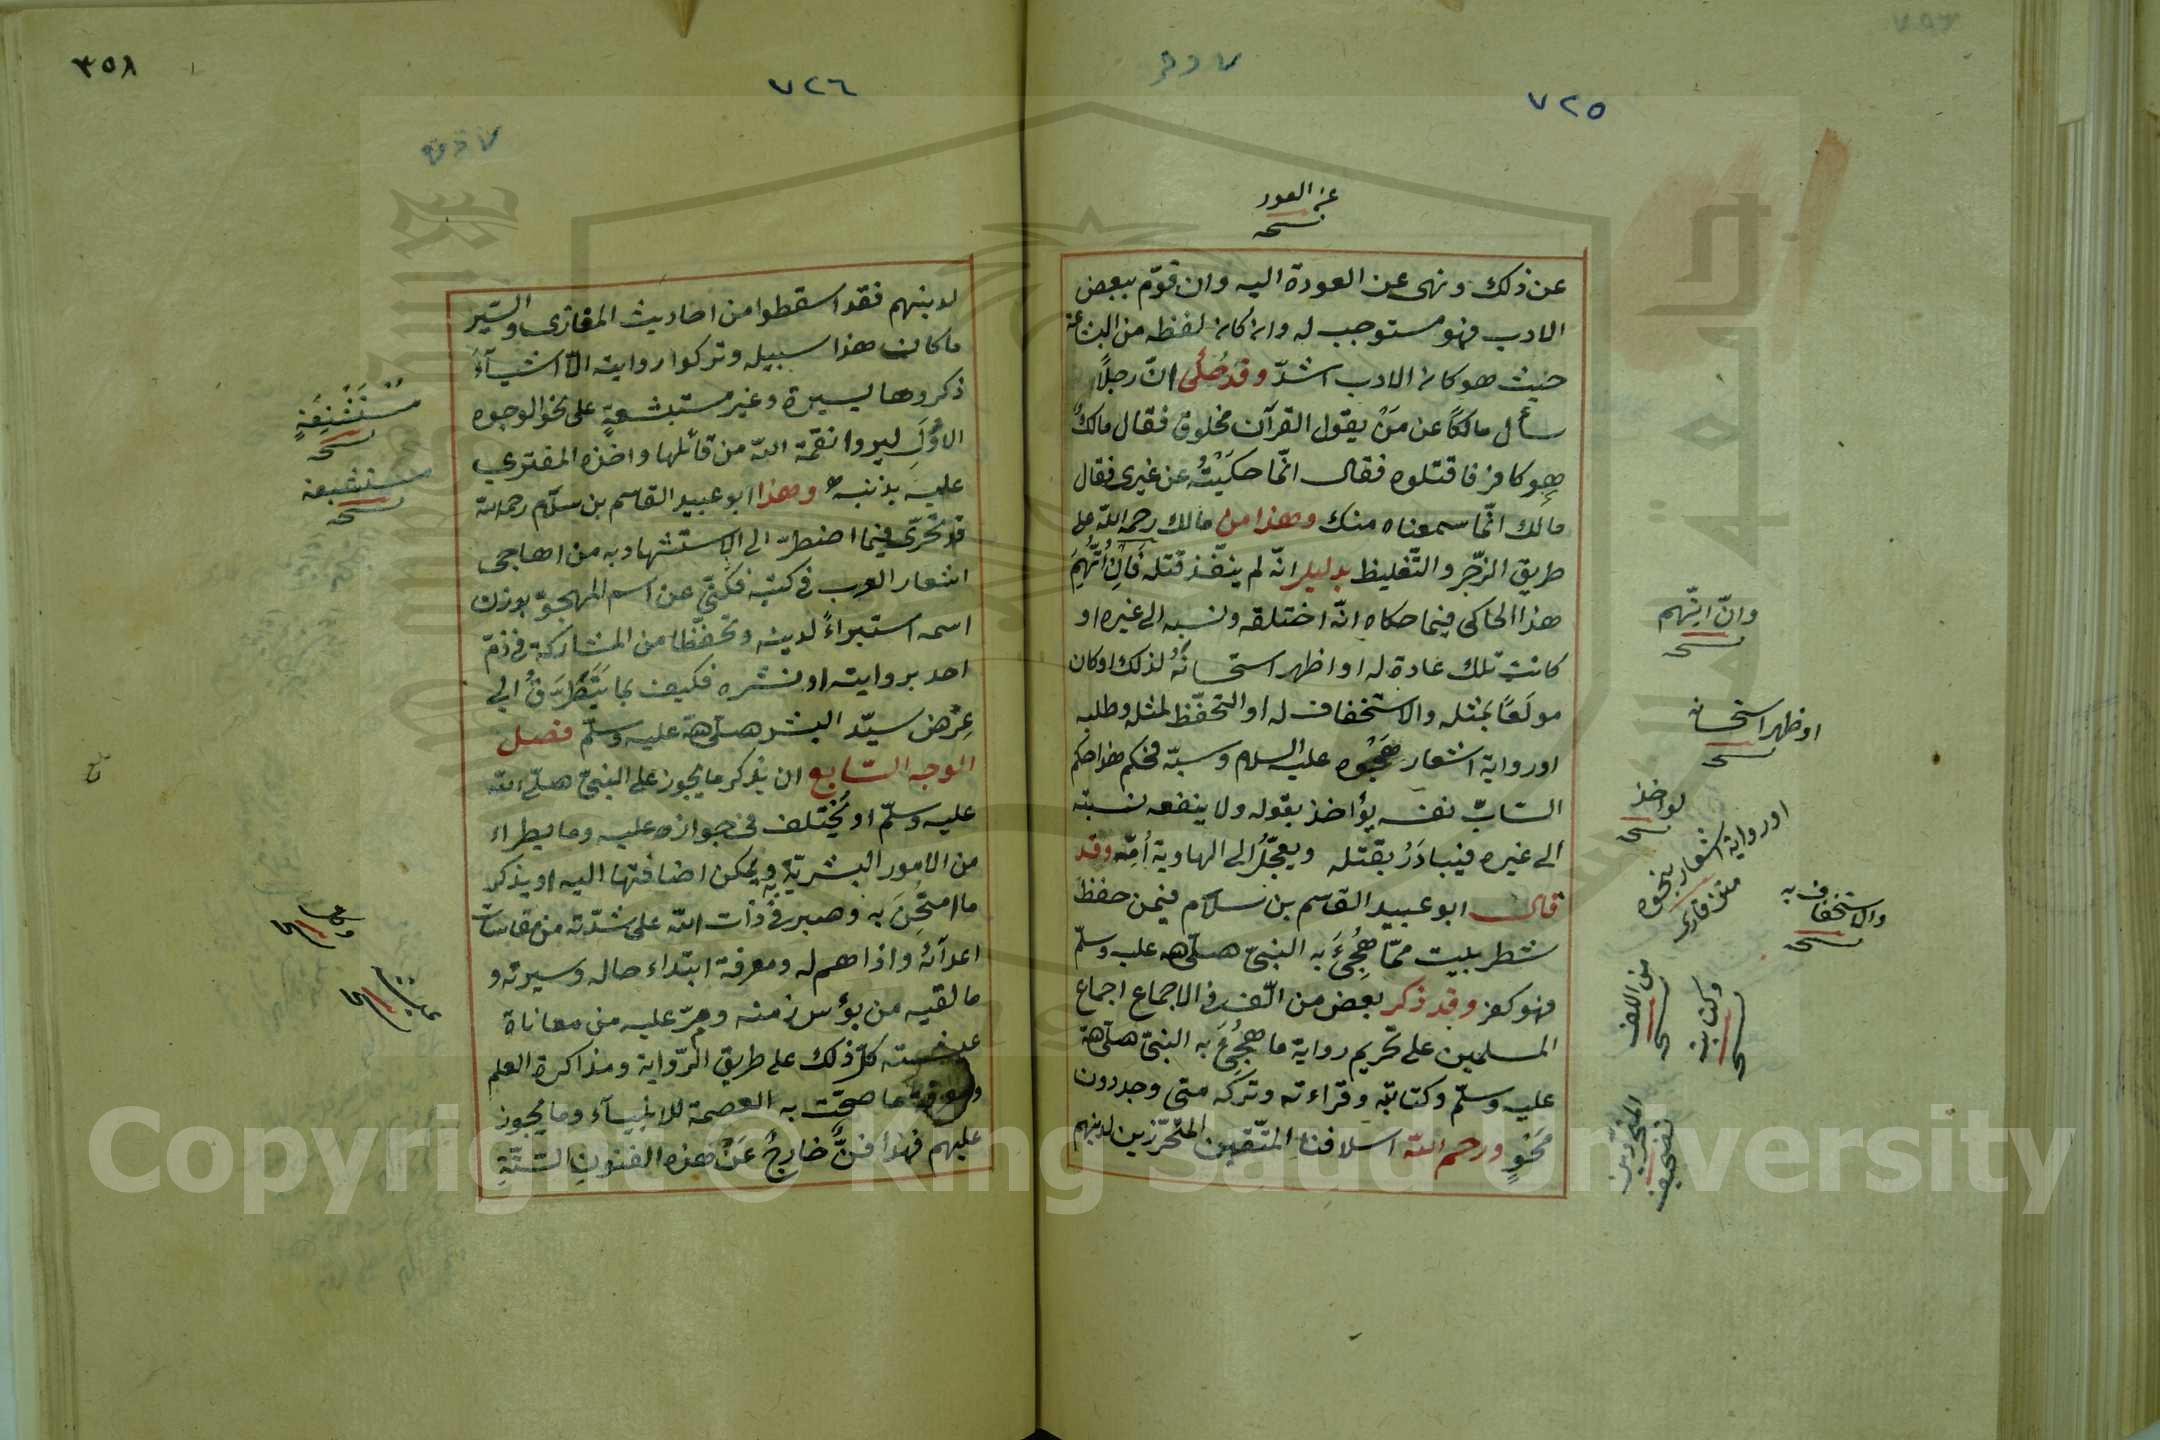 ٧٢٥
عن العود
نسخه
عن ذلك ونهى عن العودة اليه وان قوّم ببعض
الادب فهو مستوجب له وان كان لفظه من البشاعة
حيث هو كان الادب اشدّ وقد حُكى انّ رجلاً
سأل مالكًا عن مَنْ يقول القرآن مخلوق فقال مالك
هو كافر فاقتلوه فقال انّما حكَيْتُه عن غيرى فقال
مالك انّما سمعناه منك وهذا من مالك رحمه اللّه على
طريق الزّجر والتّغليظ بدليل انّه لم ينفّذ قتله فَإنْ اُتُّهِمَ
هذا الحاكى فيما حكاه انّه اختلقه ونسبه الى غيره او
كانت تلك عادة له او اظهر استحسانَهُ لذلك او كان
مولَعًا بمثله والاستخفاف له او التحفّظ لمثله وطلبه
او رواية اشعار هَجْوه عليه السلام وسبّه فحكم هذا حكم
السّابّ نفسه يؤاخذ بقوله ولا ينفعه نسبته
الى غيره فيُبادَرُ بقتله ويعجّلُ الى الهاوية اُمّه وقد
قال ابو عبيد القاسم بن سلاّم فيمن حفظ
شطر بيت ممّا هُجِىَ به النبىّ صلى الله عليه وسلّم
فهو كفر وقد ذكر بعض من الّف فى الاجماع اجماع
المسلمين على تحريم رواية ما هُجِىَ به النبىّ صلى الله
عليه وسلّم وكتابته وقراءته وتركه متى وجد دون
مَحْوٍ ورحم اللّه اسلافنا المتّقين المتحرّزين لدينهم
وانّ اتّهم
نسخه
او ظهر استحسانه
نسخه
يواخذ
نسخه
او رواية اشعار بنحوه
والاستخفاف به
نسخه
من الف
نسخه
وكتابه
نسخه
المتحرّين
٣٥٨
٧٢٦
لدينهم فقد اسقطوا من احاديث المغازى والسّير
ما كان هذا سبيله وتركوا روايته الاّ اشيآءَ
ذكروها يسيرة وغير مستبشعةٍ على نحو الوجوه
الاُوَلِ ليروا نقمة اللّه من قائلها واخذه المفترى
عليه بذنبه وهذا ابو عبيد القاسم بن سلاّم رحمه الله
قد تحرّى فيما اضطرّ الى الاستشهاد به من اهاجى
اشعار العرب فى كتبه فكنّى عن اسم المهجوّ بوزن
اسمه استبراءً لدينه وتحفّظا من المشاركة فى ذمّ
احد بروايته او نشره فكيف بما يَتَطَرّقُ الى
عِرْض سيّد البشر صلى الله عليه وسلّم فصل
الوجه السّابع ان يذكر ما يجوز على النبىّ صلّى اللّه
عليه وسلّم او يُختلف فى جوازه عليه وما يطراء
من الامور البشريّة به ويمكن اضافتها اليه او يذكر
ما امتُحِنَ به وصبر فى ذات اللّه على شدّته من مقاسات
اعدآئه واذاهم له ومعرفة ابتداء حاله وسيرته و
ما لقيه من بؤس زمنه ومرّ عليه من معاناة
عيشته كلّ ذلك على طريق الرّواية ومذاكرة العلم
ومعرفة ما صحّت به العصمة للانبيآء وما يجوز
عليهم فهذا فنٌّ خارجٌ عَنْ هذه الفنون السّتّةِ
مُسْتَشْنِعَةٍ
نسخه